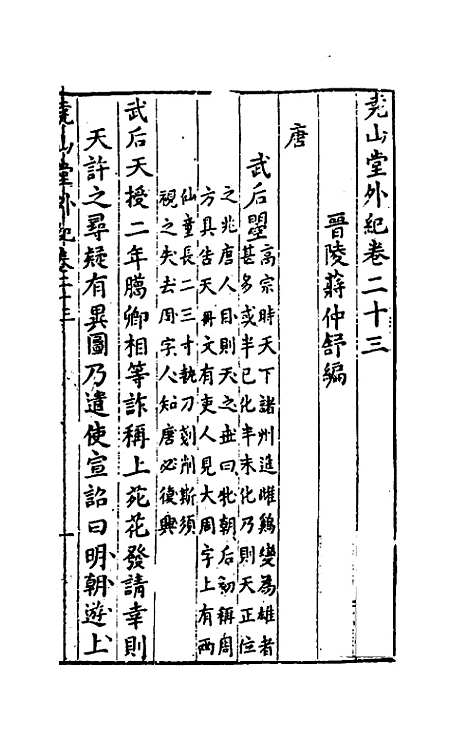 堯山堂外紀卷二十三
晉陵蔣仲舒編
唐
武后曌高宗時天下諸州進雌鷄變為雄者
甚多或半已化半未化乃則天正位
之兆唐人目則天之世曰牝朝后初稱周
方具告天冊文有吏人見大周字上有兩
仙童長二三寸執刀刻削斯須
視之失去周字人知唐必復興
武后天授二年臘卿相等詐稱上苑花發請幸則
天許之尋疑有異圖乃遣使宣詔曰明朝遊上
堯山堂外紀卷二十三
一